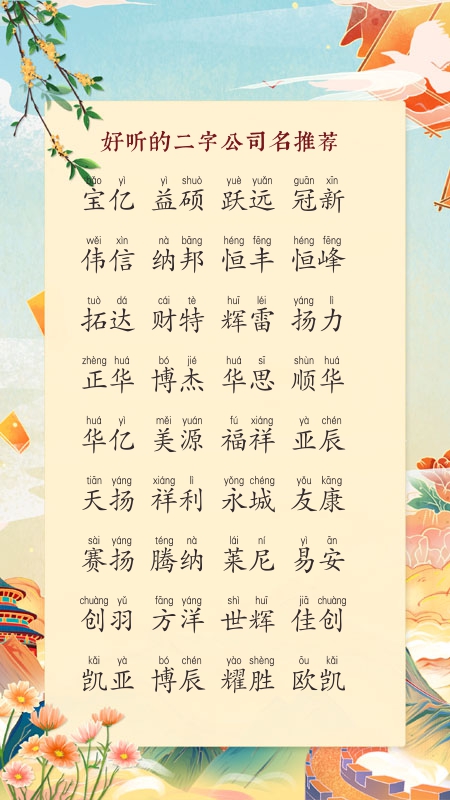 好听的二字公司名推荐
bǎo yì yì shuò yuè yuǎn guān xīn
宝亿 益硕 跃远 冠新
wěi xìn nà bāng héng fēng héng fēng
伟信 纳邦 恒丰 恒峰
tuò dá cái tè huī léi yáng lì
拓达 财特 辉雷 扬力
zhèng huá bó jié huá sī shùn huá
正华 博杰 华思 顺华
huá yì měi yuán fú xiáng yà chén
华亿 美源 福祥 亚辰
tiān yáng xiáng lì yǒng chéng yǒu kāng
天扬 祥利 永城 友康
sài yáng téng nà lái ní yì ān
赛扬 腾纳 莱尼 易安
chuàng yǔ fāng yáng shì huī jiā chuàng
创羽 方洋 世辉 佳创
kǎi yà bó chén yào shèng ōu kǎi
凯亚 博辰 耀胜 欧凯